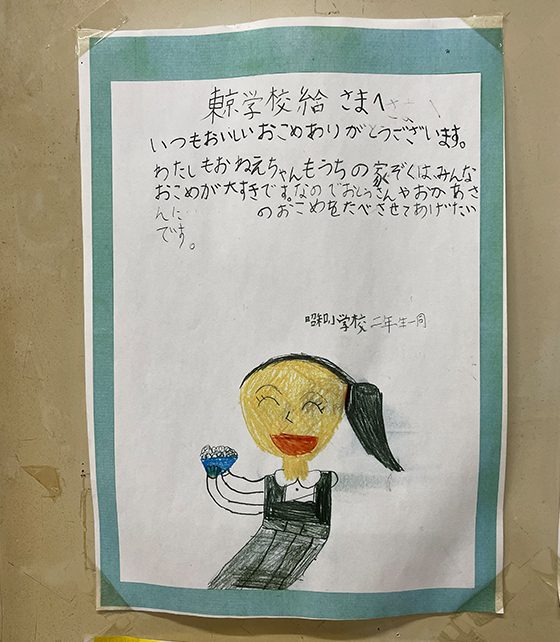 東京学校給 さまへ
いつもおいしいおこめありがとうございます。
わたしもおねえちゃんもうちの家ぞくは、みんな
おこめが大すきです。なのでおとうさんやおかあさ
んに のおこめをたべさせてあげたい
です。
昭和小学校 二年生一同